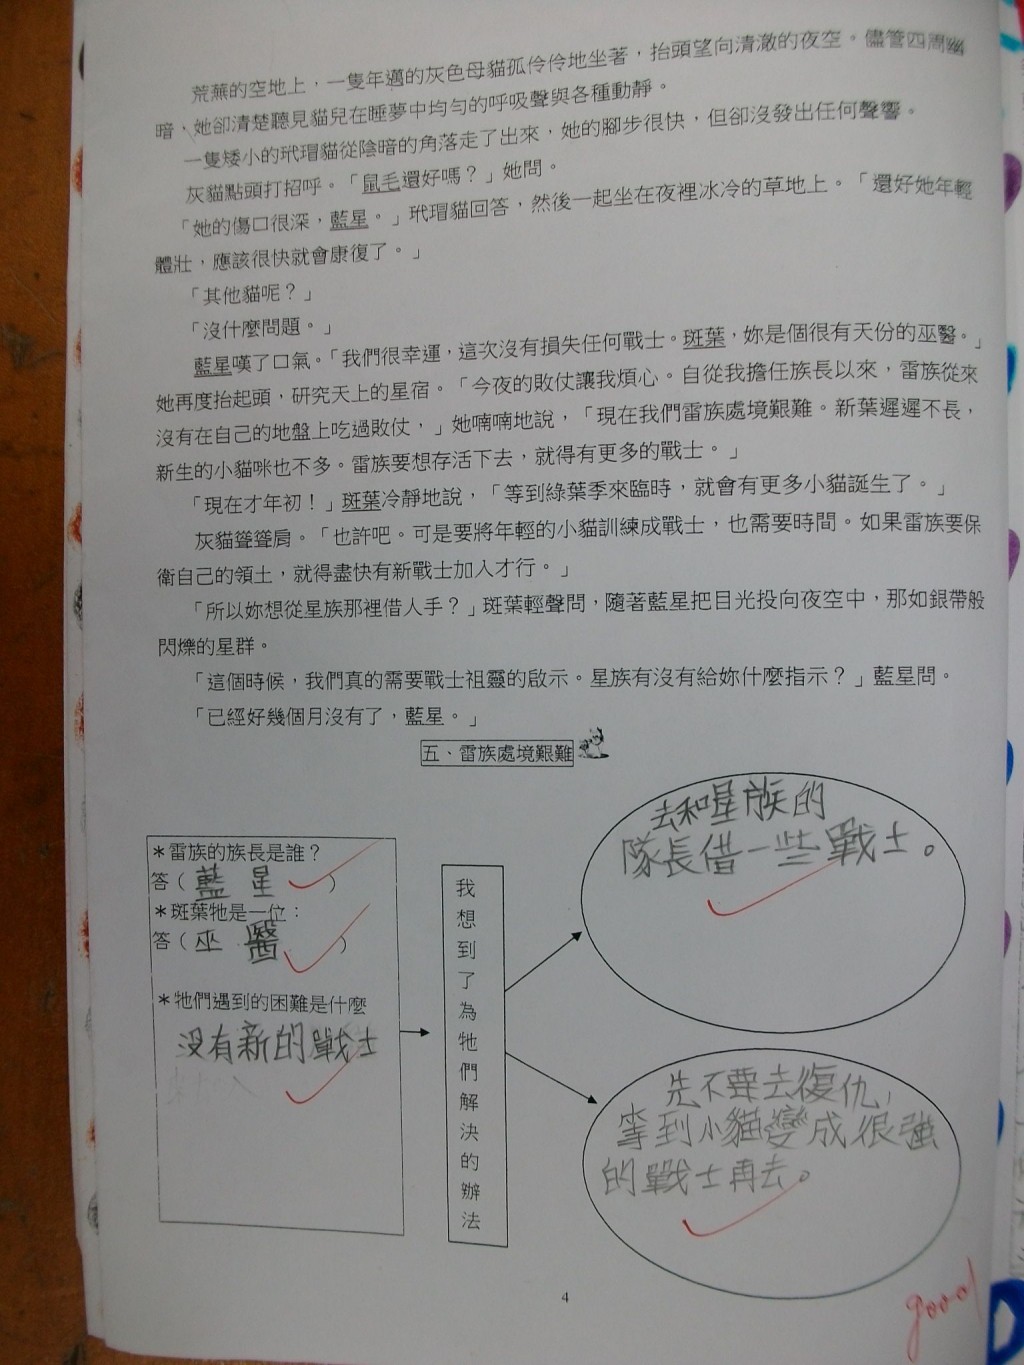 荒蕪的空地上，一隻年邁的灰色母貓孤伶伶地坐著，抬頭望向清澈的夜空。儘管四周幽
暗、她卻清楚聽見貓兒在睡夢中均勻的呼吸聲與各種動靜。
一隻矮小的玳瑁貓從陰暗的角落走了出來，她的腳步很快，但卻沒發出任何聲響。
灰貓點頭打招呼。「鼠毛還好嗎？」她問。
「她的傷口很深，藍星。」玳瑁貓回答，然後一起坐在夜裡冰冷的草地上。「還好她年輕
體壯，應該很快就會康復了。」
「其他貓呢？」
「沒什麼問題。」
藍星嘆了口氣。「我們很幸運，這次沒有損失任何戰士。斑葉，妳是個很有天份的巫醫。」
她再度抬起頭，研究天上的星宿。「今夜的敗仗讓我煩心。自從我擔任族長以來，雷族從來
沒有在自己的地盤上吃過敗仗，」她喃喃地說，「現在我們雷族處境艱難。新葉遲遲不長，
新生的小貓咪也不多。雷族要想存活下去，就得有更多的戰士。」
「現在才年初！」斑葉冷靜地說，「等到綠葉季來臨時，就會有更多小貓誕生了。」
灰貓聳聳肩。「也許吧。可是要將年輕的小貓訓練成戰士，也需要時間。如果雷族要保
衛自己的領土，就得盡快有新戰士加入才行。」
「所以妳想從星族那裡借人手？」斑葉輕聲問，隨著藍星把目光投向夜空中，那如銀帶般
閃爍的星群。
「這個時候，我們真的需要戰士祖靈的啟示。星族有沒有給妳什麼指示？」藍星問。
「已經好幾個月沒有了，藍星。」
五、雷族處境艱難
＊雷族的族長是誰？
答（藍星）
＊斑葉牠是一位：
答（巫醫）
＊牠們遇到的困難是什麼
沒有新的戰士
我想到了為牠們解決的辦法
去和星族的
隊長借一些戰士。
先不要去復仇，
等到小貓變成很強
的戰士再去。
4
good